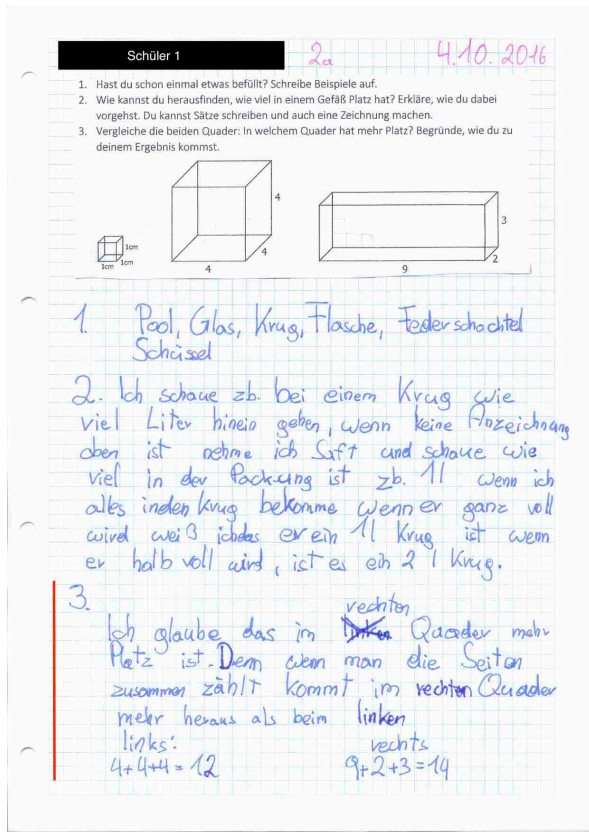 Schüler 1
2a
4.10.2016
1. Hast du schon einmal etwas befüllt? Schreibe Beispiele auf.
2. Wie kannst du herausfinden, wie viel in einem Gefäß Platz hat? Erkläre, wie du dabei
vorgehst. Du kannst Sätze schreiben und auch eine Zeichnung machen.
3. Vergleiche die beiden Quader: In welchem Quader hat mehr Platz? Begründe, wie du zu
deinem Ergebnis kommst.
1cm
1cm
1cm
4
4
4
3
2
9
1. Pool, Glas, Krug, Flasche, Federschachtel
Schüssel
2. Ich schaue zb. bei einem Krug wie
viel Liter hinein gehen, wenn keine Anzeichnung
oben ist nehme ich Saft und schaue wie
viel in der Packung ist zb. 1l wenn ich
alles in den Krug bekomme wenn er ganz voll
wird weiß ich das er ein 1l Krug ist wenn
er halb voll wird, ist es ein 2 l Krug.
3.
rechten
Ich glaube das im linken Quader mehr
Platz ist. Denn wenn man die Seiten
zusammen zählt kommt im rechten Quader
mehr heraus als beim linken
links: rechts
4+4+4=12 9+2+3=14